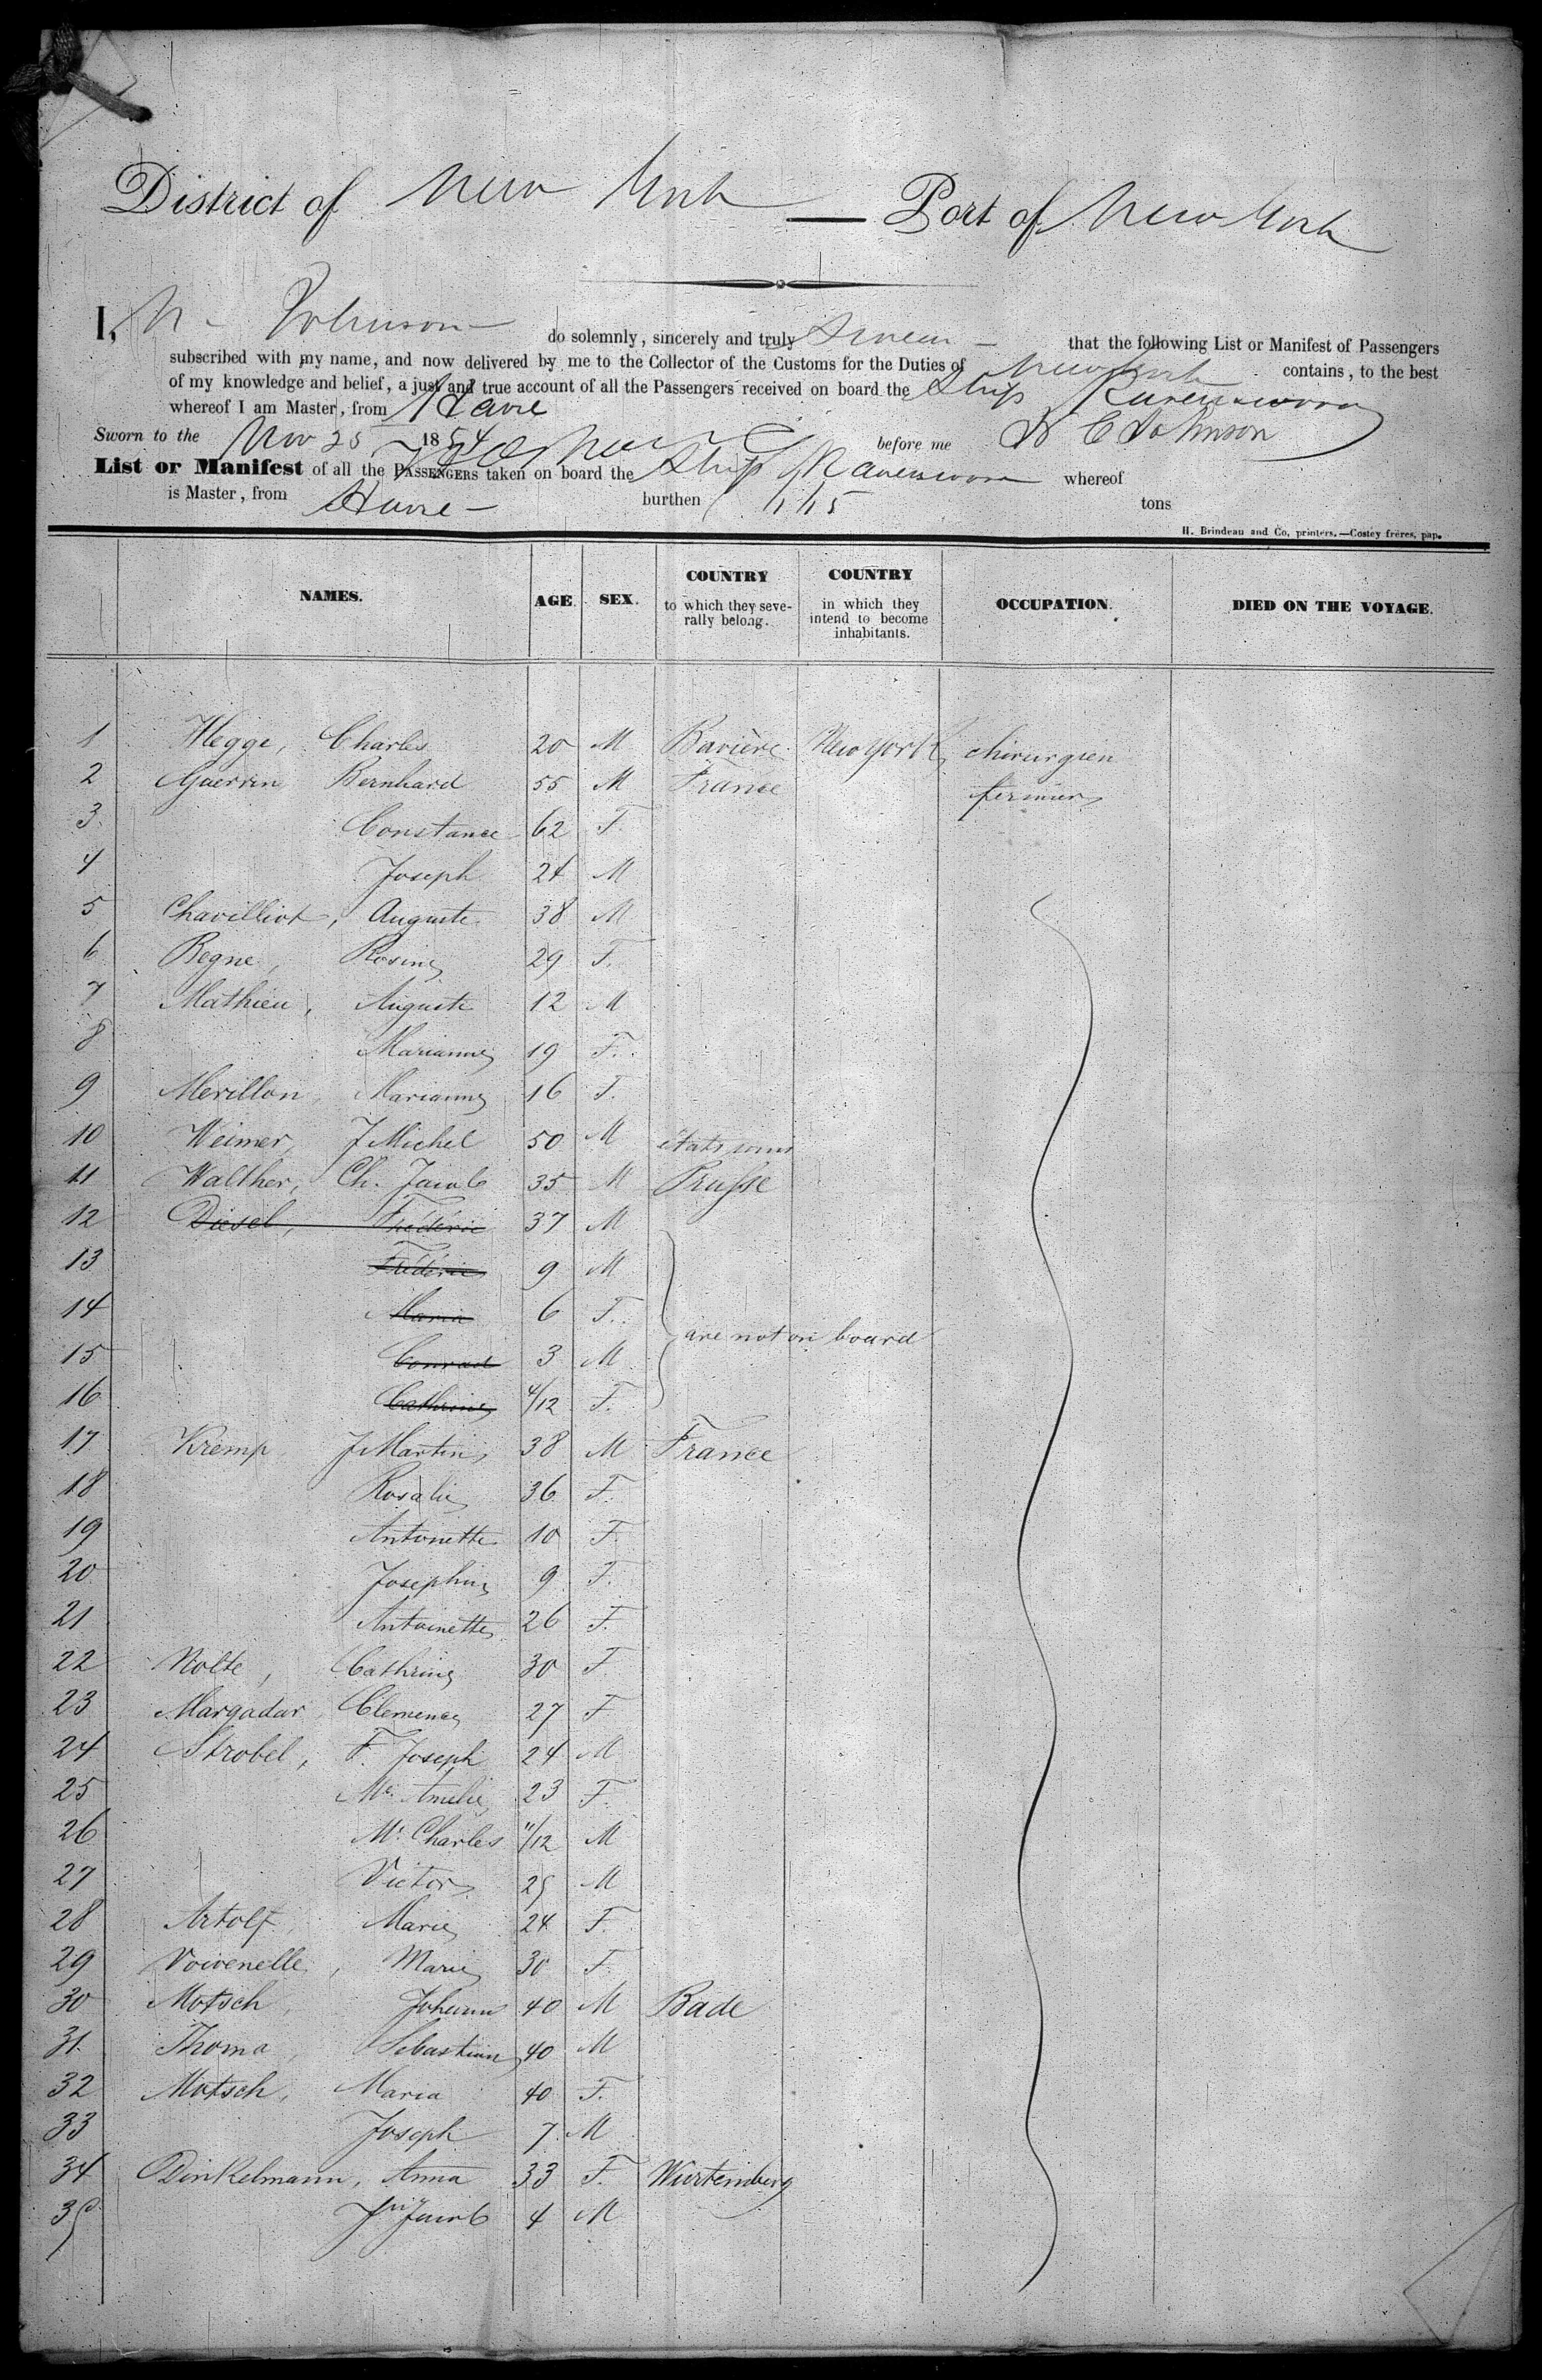 District of New York — Port of New York
I, N - Johnson do solemnly, sincerely and truly swear - that the following List or Manifest of Passengers
subscribed with my name, and now delivered by me to the Collector of the Customs for the Duties of New York contains, to the best
of my knowledge and belief, a just and true account of all the Passengers received on board the Ship Ravenswood
whereof I am Master, from Havre
Sworn to the Nov 25 1854 before me N C Johnson
List or Manifest of all the PASSENGERS taken on board the Ship Ravenswood whereof
is Master, from Havre - burthen tons
H. Brindeau and Co, printers.—Costey frères, pap.
NAMES. AGE. SEX. COUNTRY to which they severally belong. COUNTRY in which they intend to become inhabitants. OCCUPATION. DIED ON THE VOYAGE.
1 Hegge, Charles 20 M Bavière New York chirurgien
2 Guerrin Bernhard 55 M France fermier
3 Constance 62 F.
4 Joseph 24 M
5 Chavilliot, Auguste 38 M
6 Begne, Rosine 29 F.
7 Mathieu, Auguste 12 M
8 Marianne 19 F.
9 Merillon, Marianne 16 F.
10 Weimer, J Michel 50 M états unis
11 Walther, Ch. Jacob 35 M Prusse
12 Diesel, Frédéric 37 M
13 Frédéric 9 M
14 Maria 6 F.
are not on board
15 Conrad 3 M
16 Cathrine 4/12 F.
17 Kremp J Martin 38 M France
18 Rosalie 36 F.
19 Antonette 10 F.
20 Josephine 9 F.
21 Antoinette 26 F.
22 Nolte, Cathrine 30 F
23 Margadar Clemence 27 F
24 Strobel, F. Joseph 24 M
25 Me. Amelie 23 F.
26 Mr. Charles 11/12 M
27 Victor 25 M
28 Artolf, Marie 24 F.
29 Voivenelle, Marie 30 F.
30 Motsch, Johann 40 M Bade
31. Thoma, Sebastian 40 M
32 Motsch, Maria 40 F.
33 Joseph 7 M
34 Dinkelmann, Anna 33 F. Wurtemberg
35 Jacob 4 M